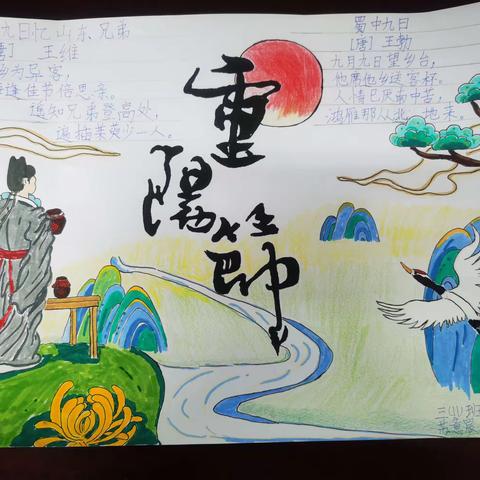 九日忆山东兄弟
王维
乡为异客，
逢佳节倍思亲。
遥知兄弟登高处，
遍插茱萸少一人。
重陽節
蜀中九日
[唐] 王勃
九月九日望乡台，
他席他乡送客杯。
人情已厌南中苦，
鸿雁那从北地来。